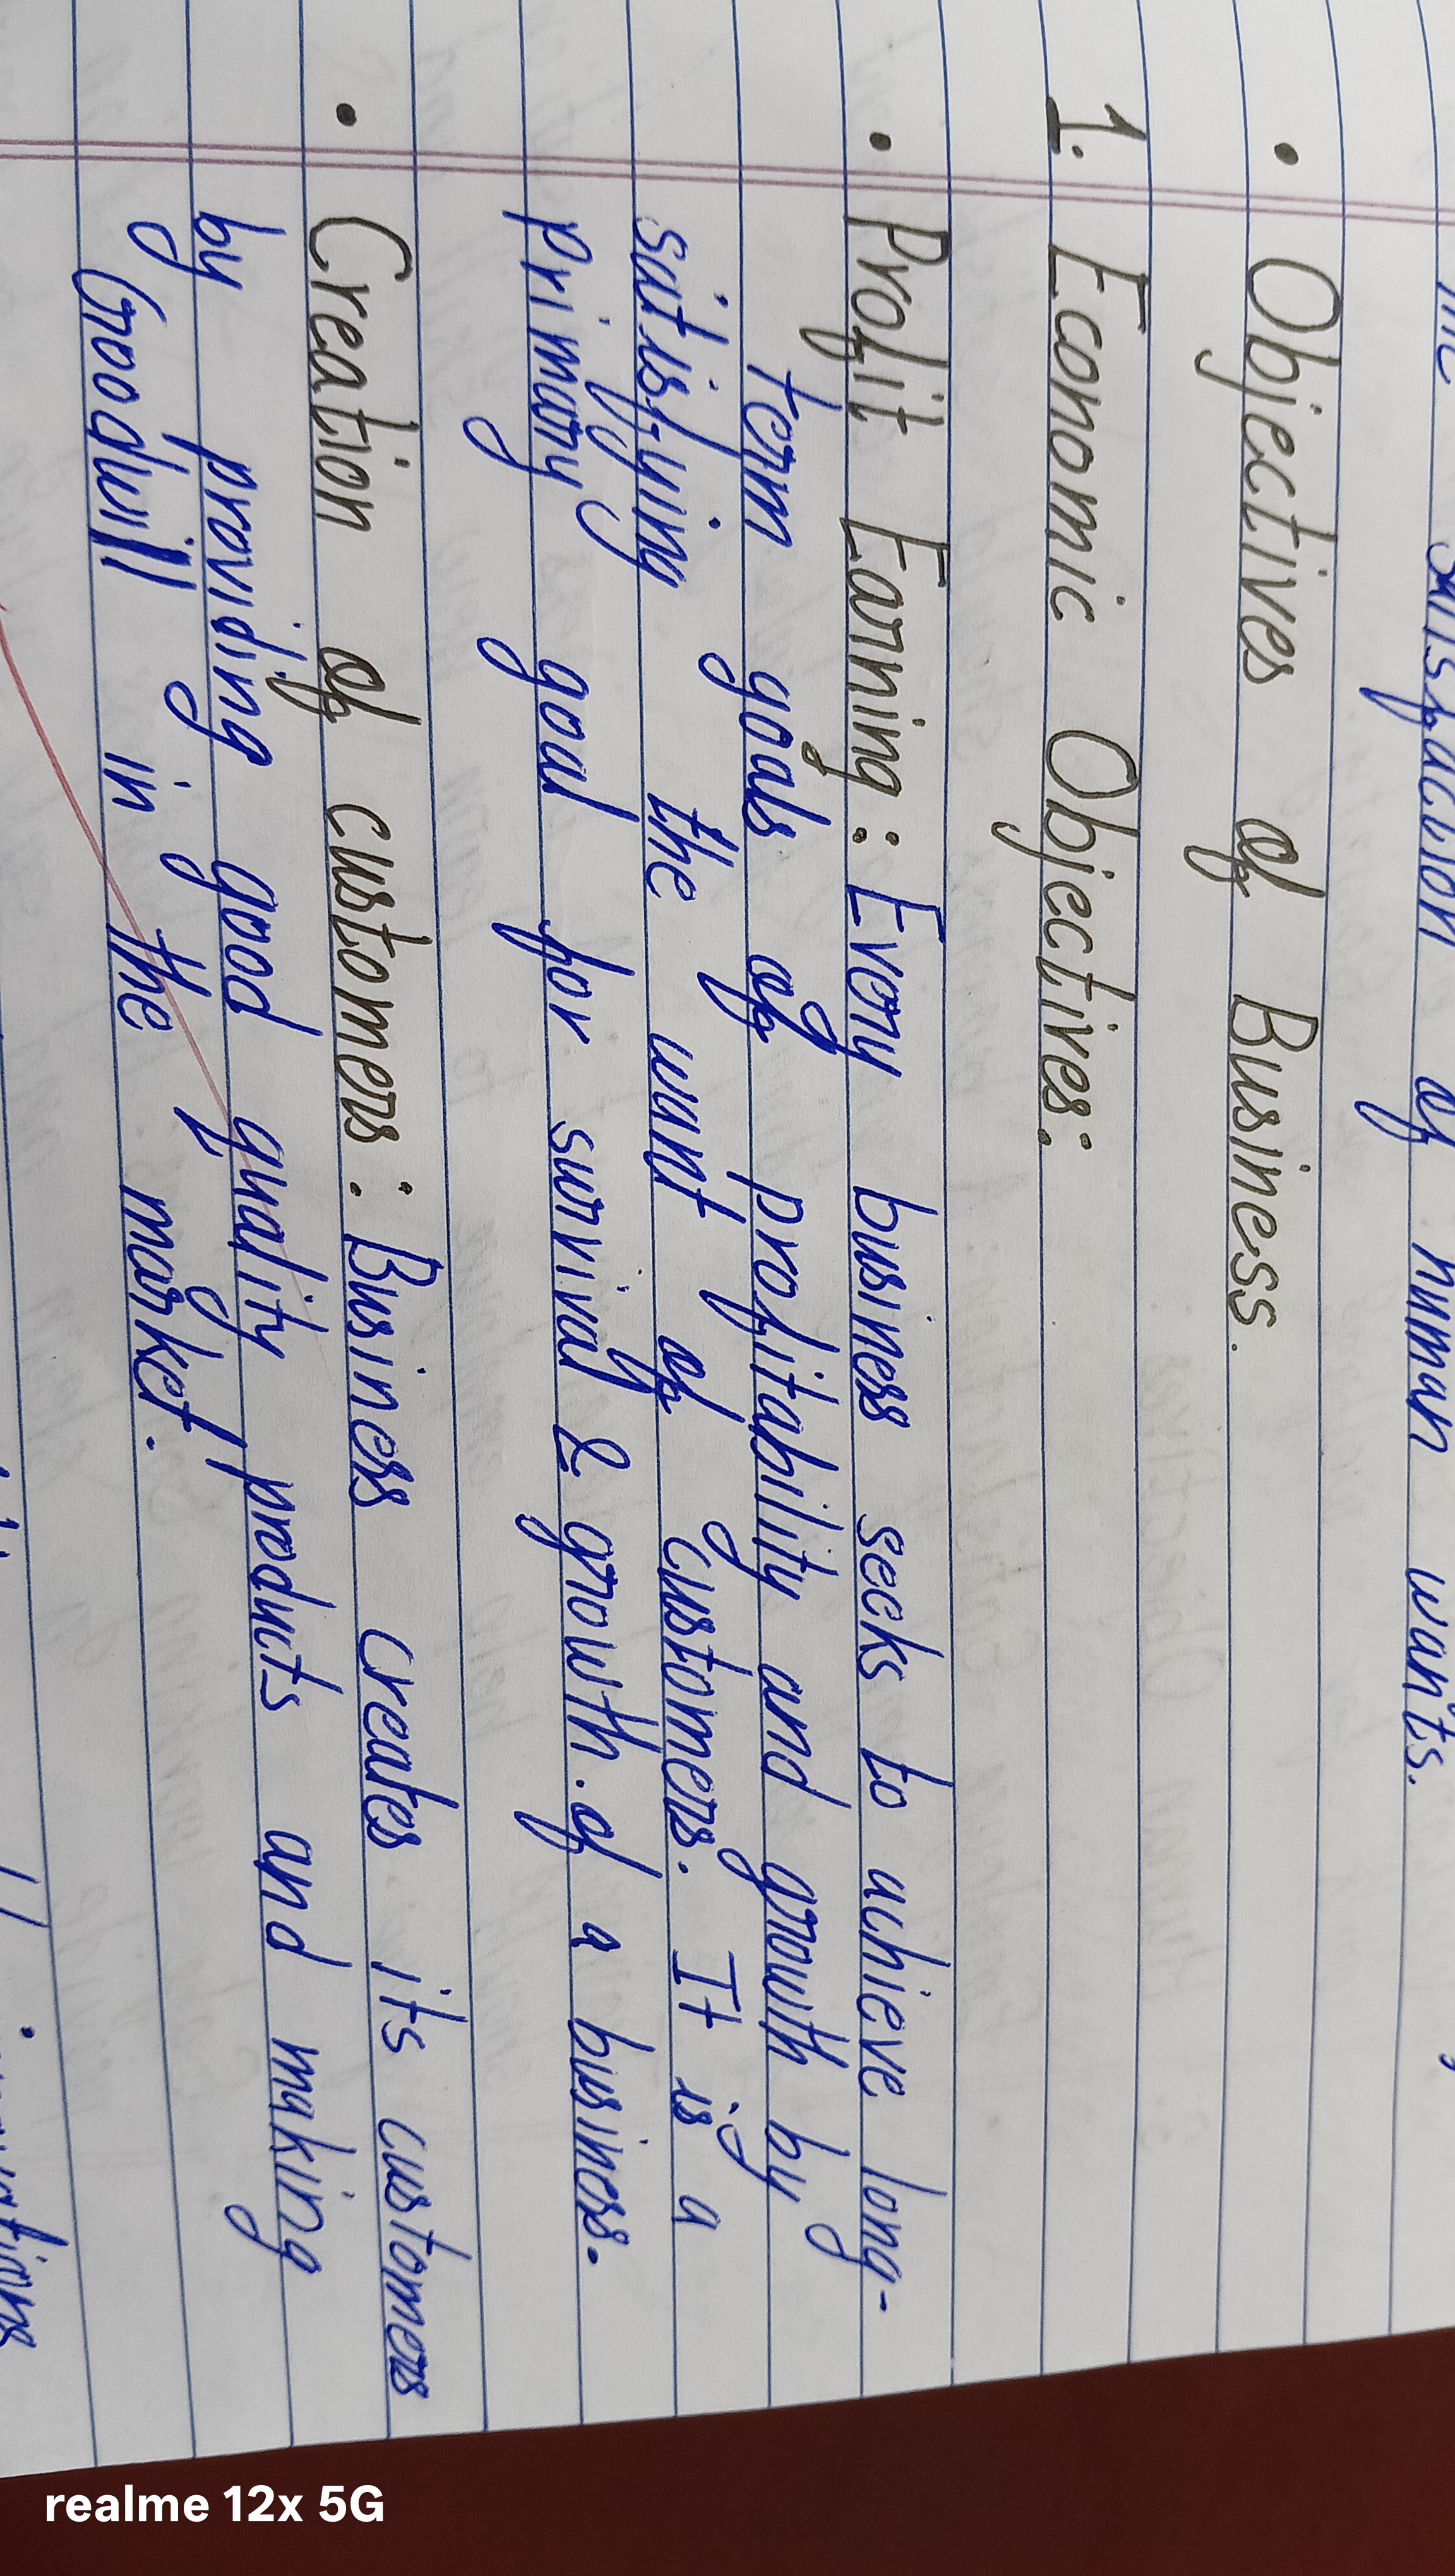 the satisfaction of human wants.
• Objectives of Business.
1. Economic Objectives:
• Profit Earning : Every business seeks to achieve long-
term goals of profitability and growth by
satisfying the want of customers. It is a
primary goal for survival & growth of a business.
• Creation of customers : Business creates its customers
by providing good quality products and making
Goodwill in the market.
realme 12x 5G